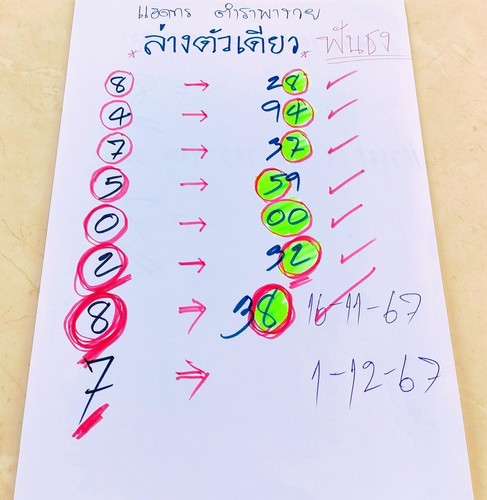 แอดการ ตำราพารวย
*ล่างตัวเดียว* ฟันธง
8 → 28 ✓
4 → 94 ✓
7 → 37 ✓
5 → 59 ✓
0 → 00 ✓
2 → 32 ✓
8 → 38 16-11-67
7 → 1-12-67